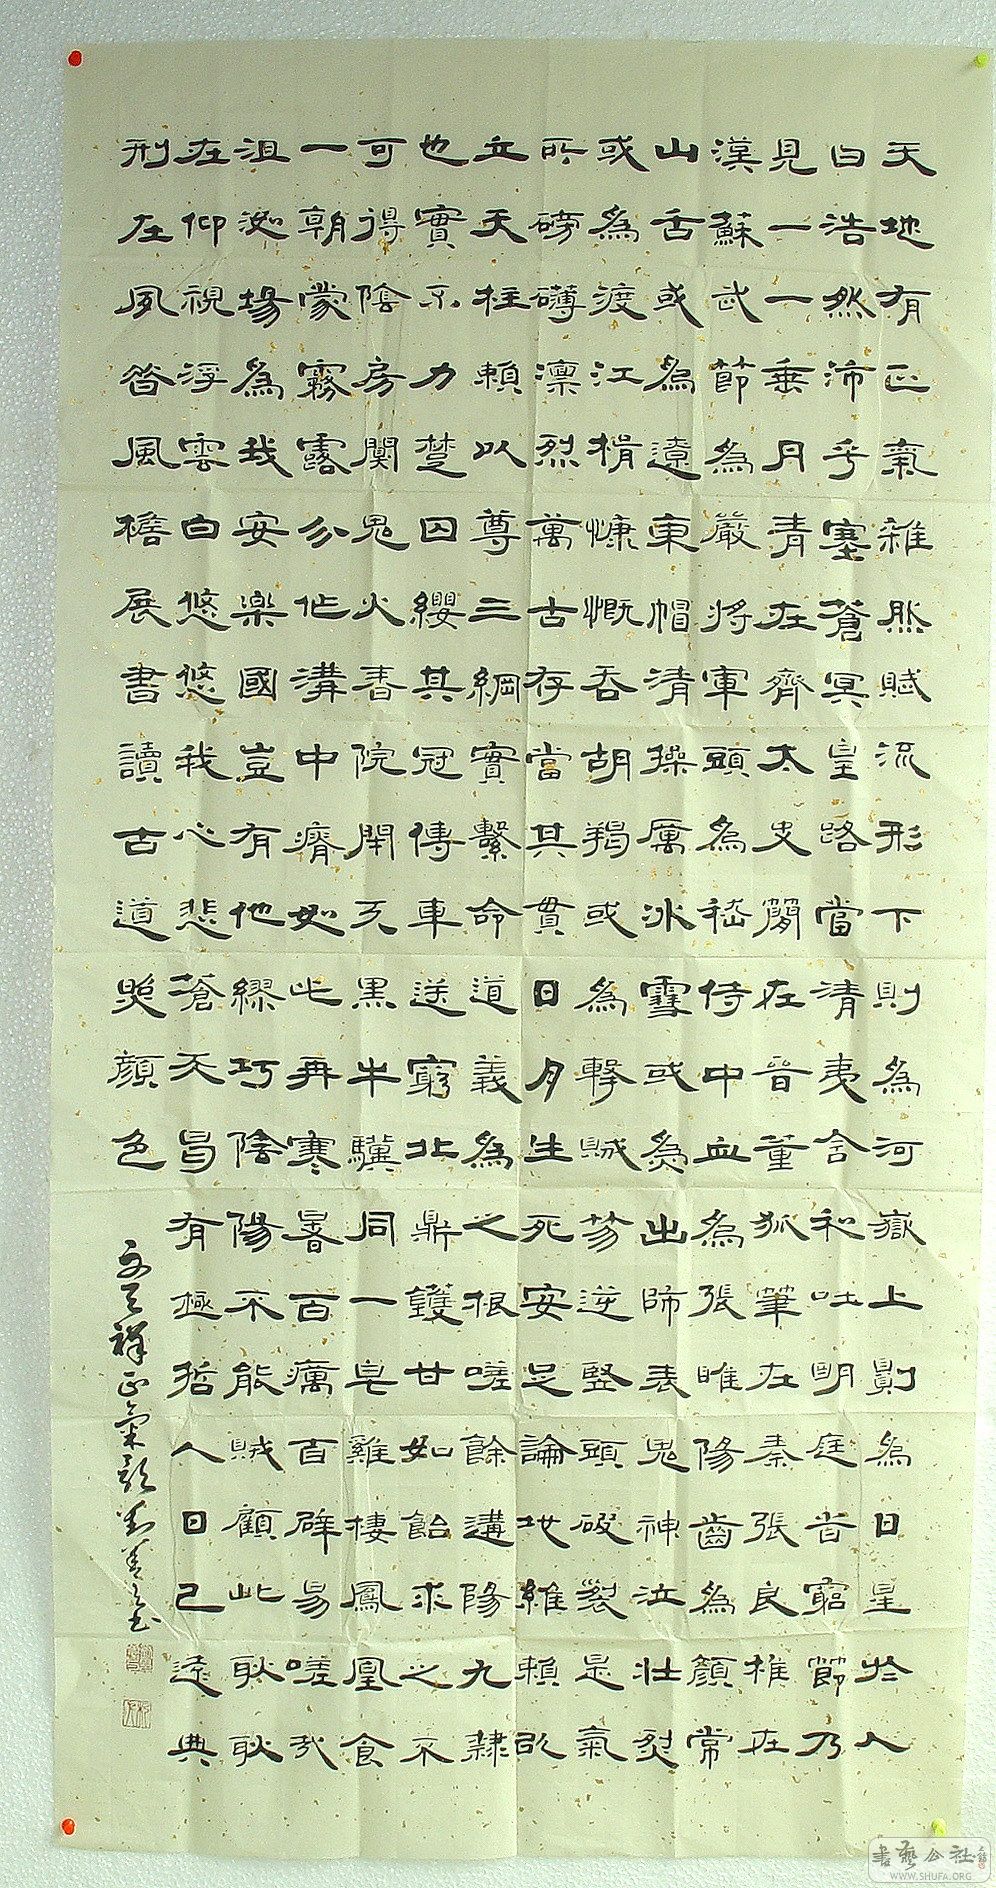 天地有正氣雜然賦流形下則為河嶽上則為日星於人
曰浩然沛乎塞蒼冥皇路當清夷含和吐明庭時窮節乃
見一一垂丹青在齊太史簡在晉董狐筆在秦張良椎在
漢蘇武節為嚴將軍頭為嵇侍中血為張睢陽齒為顏常
山舌或為遼東帽清操厲冰雪或為出師表鬼神泣壯烈
或為渡江楫慷慨吞胡羯或為擊賊笏逆豎頭破裂是氣
所磅礴凜烈萬古存當其貫日月生死安足論地維賴以
立天柱賴以尊三綱實繫命道義為之根嗟餘遘陽九隸
也實不力楚囚纓其冠傳車送窮北鼎鑊甘如飴求之不
可得陰房闃鬼火春院閉天黑牛驥同一皂雞棲鳳凰食
一朝蒙霧露分作溝中瘠如此再寒暑百癘百辟易嗟哉
沮洳場為我安楽國豈有他繆巧陰陽不能賊顧此耿耿
在仰視浮雲白悠悠我心悲蒼天曷有極哲人日已遠典
刑在夙昔風檐展書讀古道照顏色
文天祥正氣歌
書藝公社
WWW.SHUFA.ORG